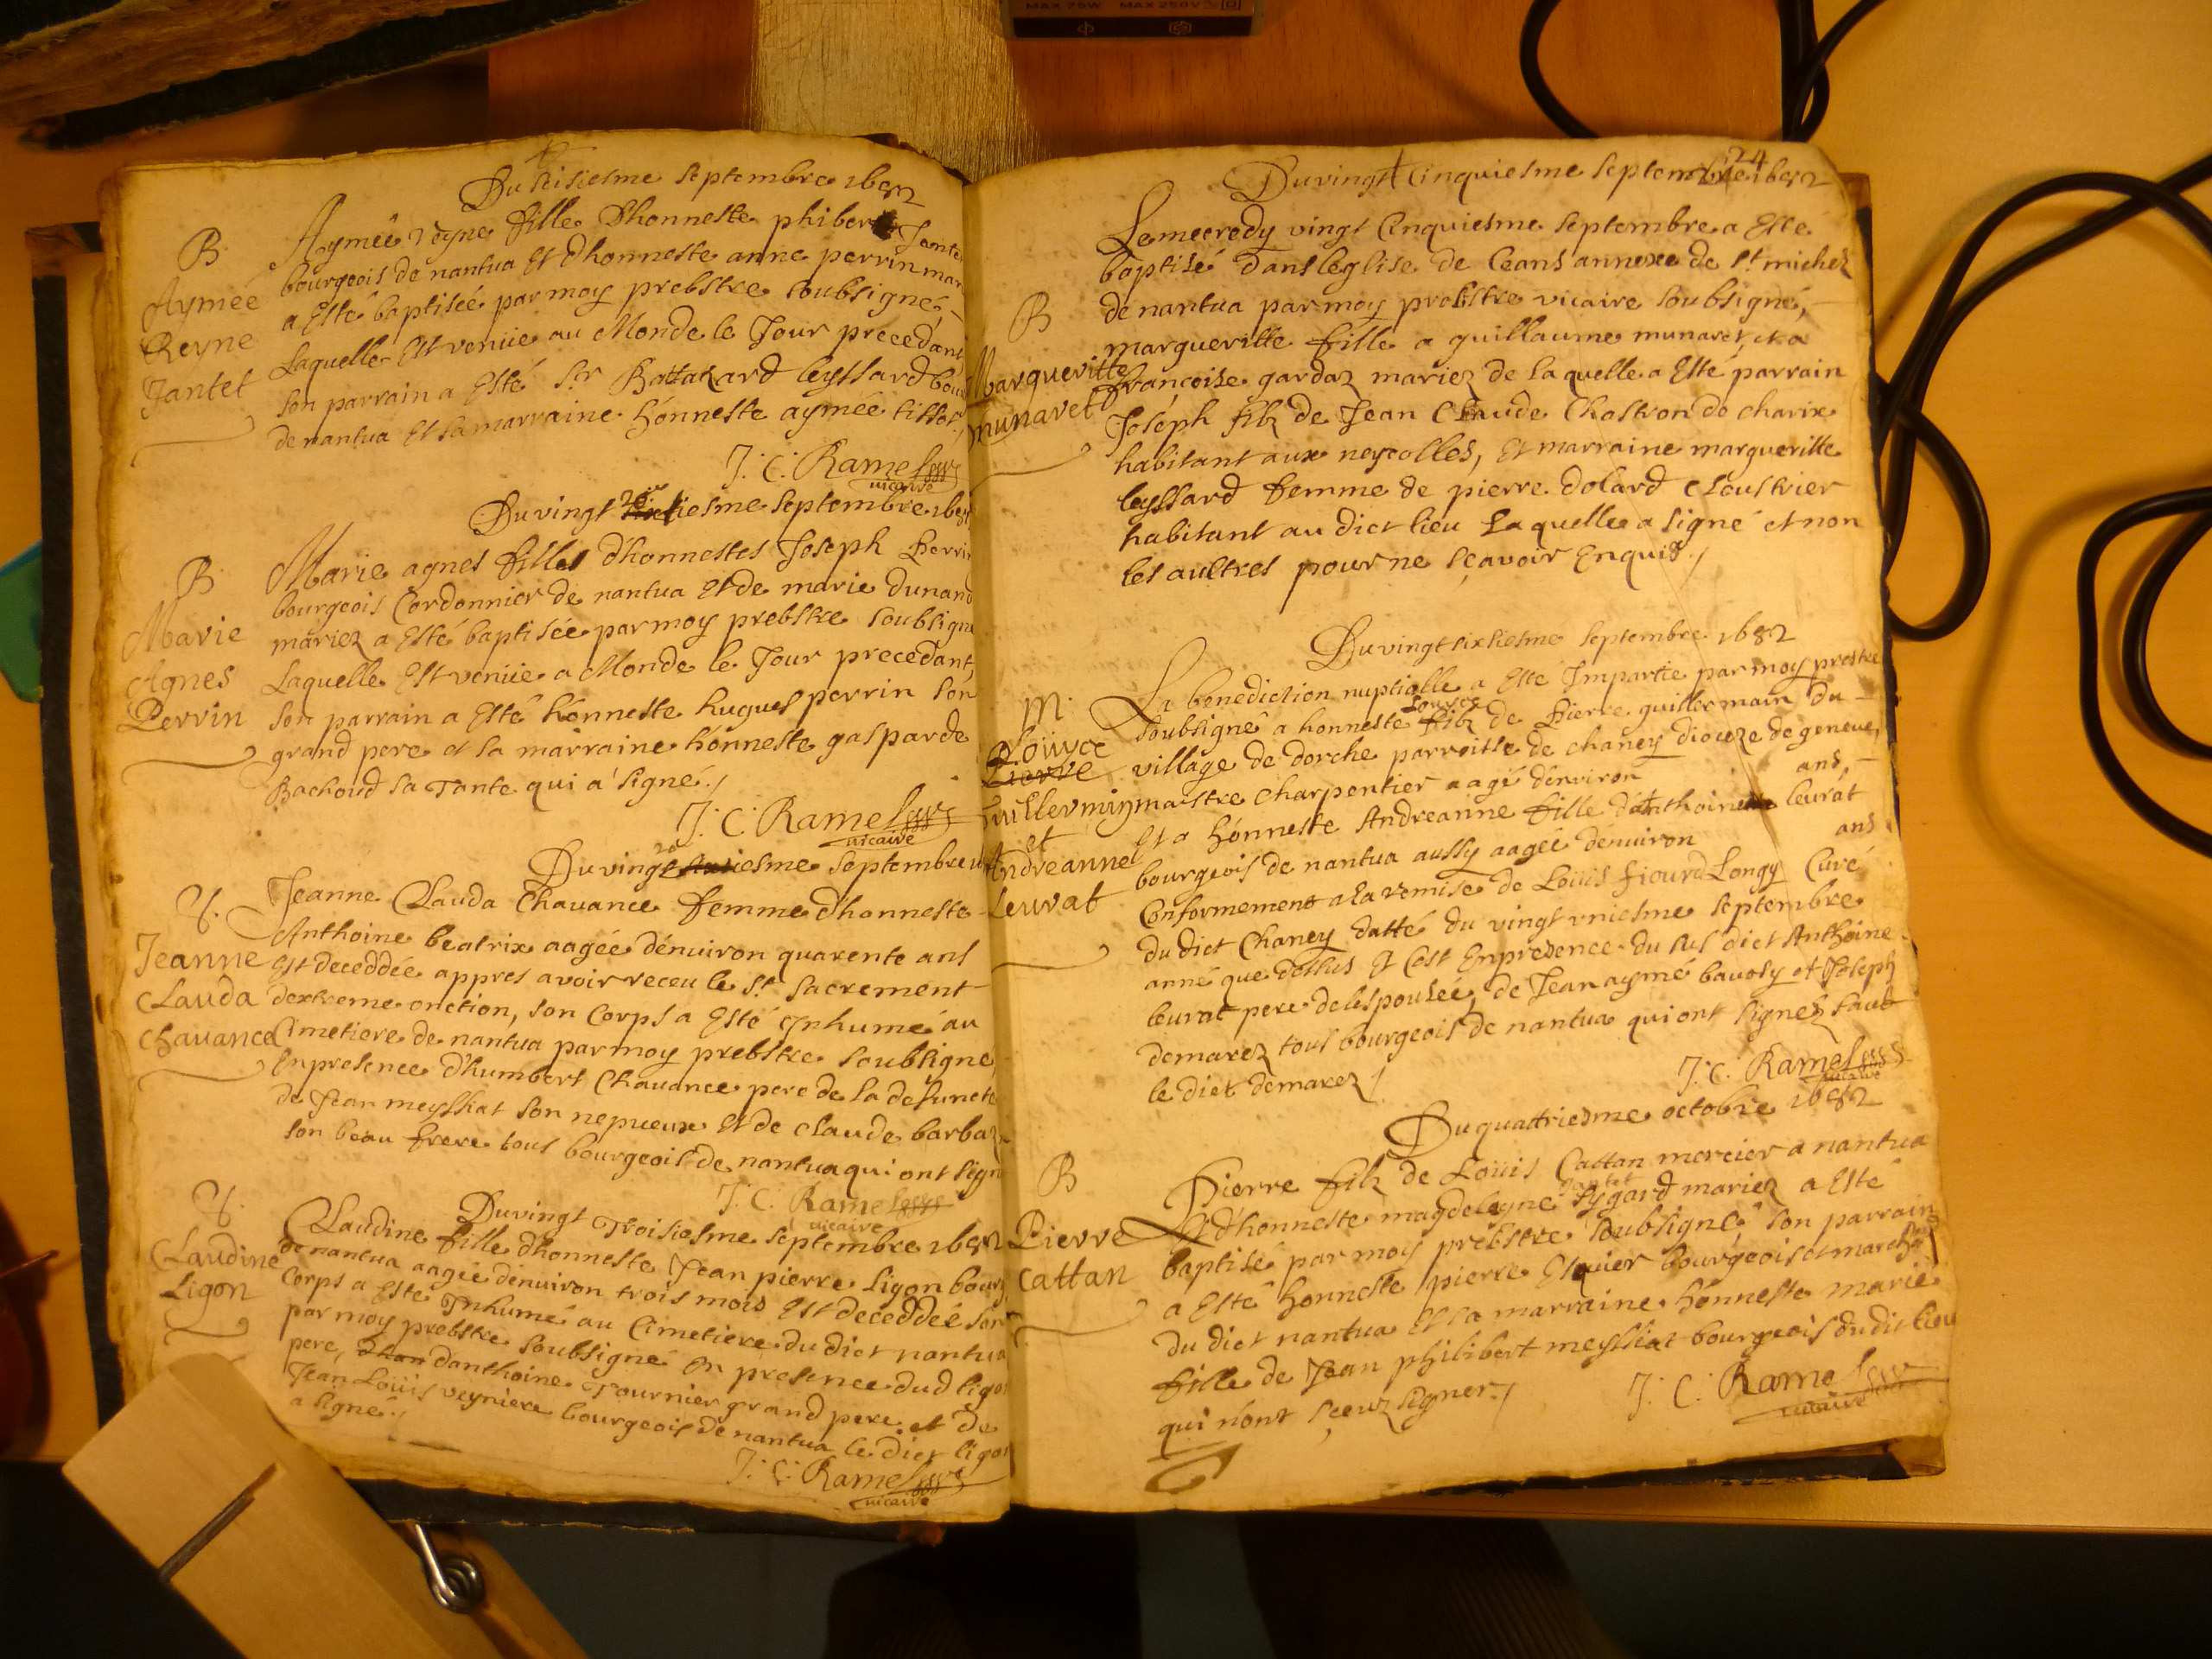 MAX 75W MAX 250V
Du seisiesme septembre 1682
B
Aymée
Reyne
Jantet
Aymée reyne fille dhonneste phibert Jante
bourgeois de nantua Et dhonneste anne perrin mar
a Esté baptisée par moy prebstre soubsigné,
Laquelle Est venüe au Monde le Jour precedant
son parrain a Esté Sr Battazard leyssard bou
de nantua Et sa marraine hónneste aymée tissot,
J: C: Ramel
vicaire
Du vingt iesme septembre 168
B
Marie
Agnes
Perrin
Marie agnes fille d'honnestes Joseph Perrin
bourgeois Cordonnier de nantua Et de marie dunand
mariez a Esté baptisée par moy prebstre soubsigne
Laquelle Est venüe a Monde le Jour precedant,
son parrain a Esté hónneste hugues perrin son
grand pere et sa marraine hónneste gasparde
Bachoud sa Tante qui a signé./
J: C: Ramel
vicaire
Du vingt iesme septembre
Jeanne
Clauda
Chavance
Jeanne Clauda Chavance femme d'honneste
Anthoine beatrix aagée dénuiron quarente ans
est deceddée appres avoir receu le st. sacrement
dextreme onction, son Corps a Esté Inhumé au
Cimetiere de nantua par moy prebstre soubsigne
En presence d'humbert Chavance pere de la defuncte
de Jean meyssiat son nepueux Et de Claude barbaz
son beau frere tous bourgeois de nantua qui ont sign
J: C: Ramel
vicaire
Du vingt Troisiesme septembre 1682
Claudine
Ligon
Claudine fille dhonneste Jean pierre ligon bourg
de nantua aagée dénuiron trois mois Est deceddée son
Corps a Esté Inhumé au Cimetiere du dict nantua
par moy prebstre soubsigné En presence dud ligon
pere, danthoine Tournier grand pere et de
Jean Loüis veyniere bourgeois de nantua le dict ligon
a signé./
J: C: Ramel
vicaire
24
Du vingt Cinquiesme septembre 1682
B
Margueritte
munaret
Le mecredy vingt Cinquiesme septembre a Esté
baptisé dans leglise de Ceans annexe de st. michel
de nantua par moy prebstre vicaire soubsigné,
margueritte fille a guillaume munaret, et a
françoise gardaz mariez de laquelle a Esté parrain
Joséph filz de Jean Claude Chastron de charix
habitant aux neyrolles, Et marraine margueritte
leyssard femme de pierre dolard Cloustrier
habitant au dict lieu Laquelle a signé et non
les aultres pour ne sçavoir Enquis./
Du vingt sixsiesme septembre 1682
M.
Loüyce
Pierre
Guillermin
et
Andreanne
Leurat
La benediction nuptialle a Esté Impartie par moy prestre
soubsigné a honneste filz de Pierre guillermain du
village de dorche parroisse de chaney dioceze de geneue,
maistre charpentier aagé dénuiron ans,
Et a hónneste Andreanne fille danthoine leurat
bourgeois de nantua aussy aagée dénuiron ans
Conformement a la remise de Loüis ficurd Longy Curé
du dict Chaney datté du vingt vniesme septembre
anné que dessus Et Cest Enpresence du sus dict Anthoine
leurat pere de lespousée, de Jean aymé bauosy et Joseph
demarez tous bourgeois de nantua qui ont signez sauf
le dict demarez /
J: C: Ramel
vicaire
Du quattriesme octobre 1682
B
Pierre
Cattan
Pierre filz de Loüis Cattan mercier a nantua
Et d'honneste magdeleyne sygard mariez a Esté
baptisé par moy prebstre soubsigné son parrain
a Esté honneste pierre Esquier bourgeois et march
du dict nantua Et sa marraine hónneste marie
fille de Jean philibert meyssiat bourgeois du dit lieu
qui nont sçeuz signer./
J: C: Ramel
vicaire